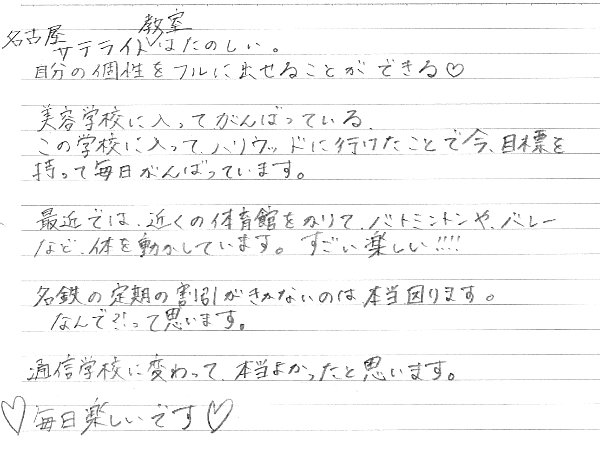 名古屋サテライト教室はたのしい。
自分の個性をフルに出せることができる♡
美容学校に入ってがんばっている。
この学校に入って、ハリウッドに行けたことで今、目標を
持って毎日がんばっています。
最近では、近くの体育館をかりて、バトミントンや、バレー
など、体を動かしています。すごい楽しい!!!!
名鉄の定期の割引がきかないのは本当困ります。
なんで?!って思います。
通信学校に変わって、本当よかったと思います。
♡毎日楽しいです♡